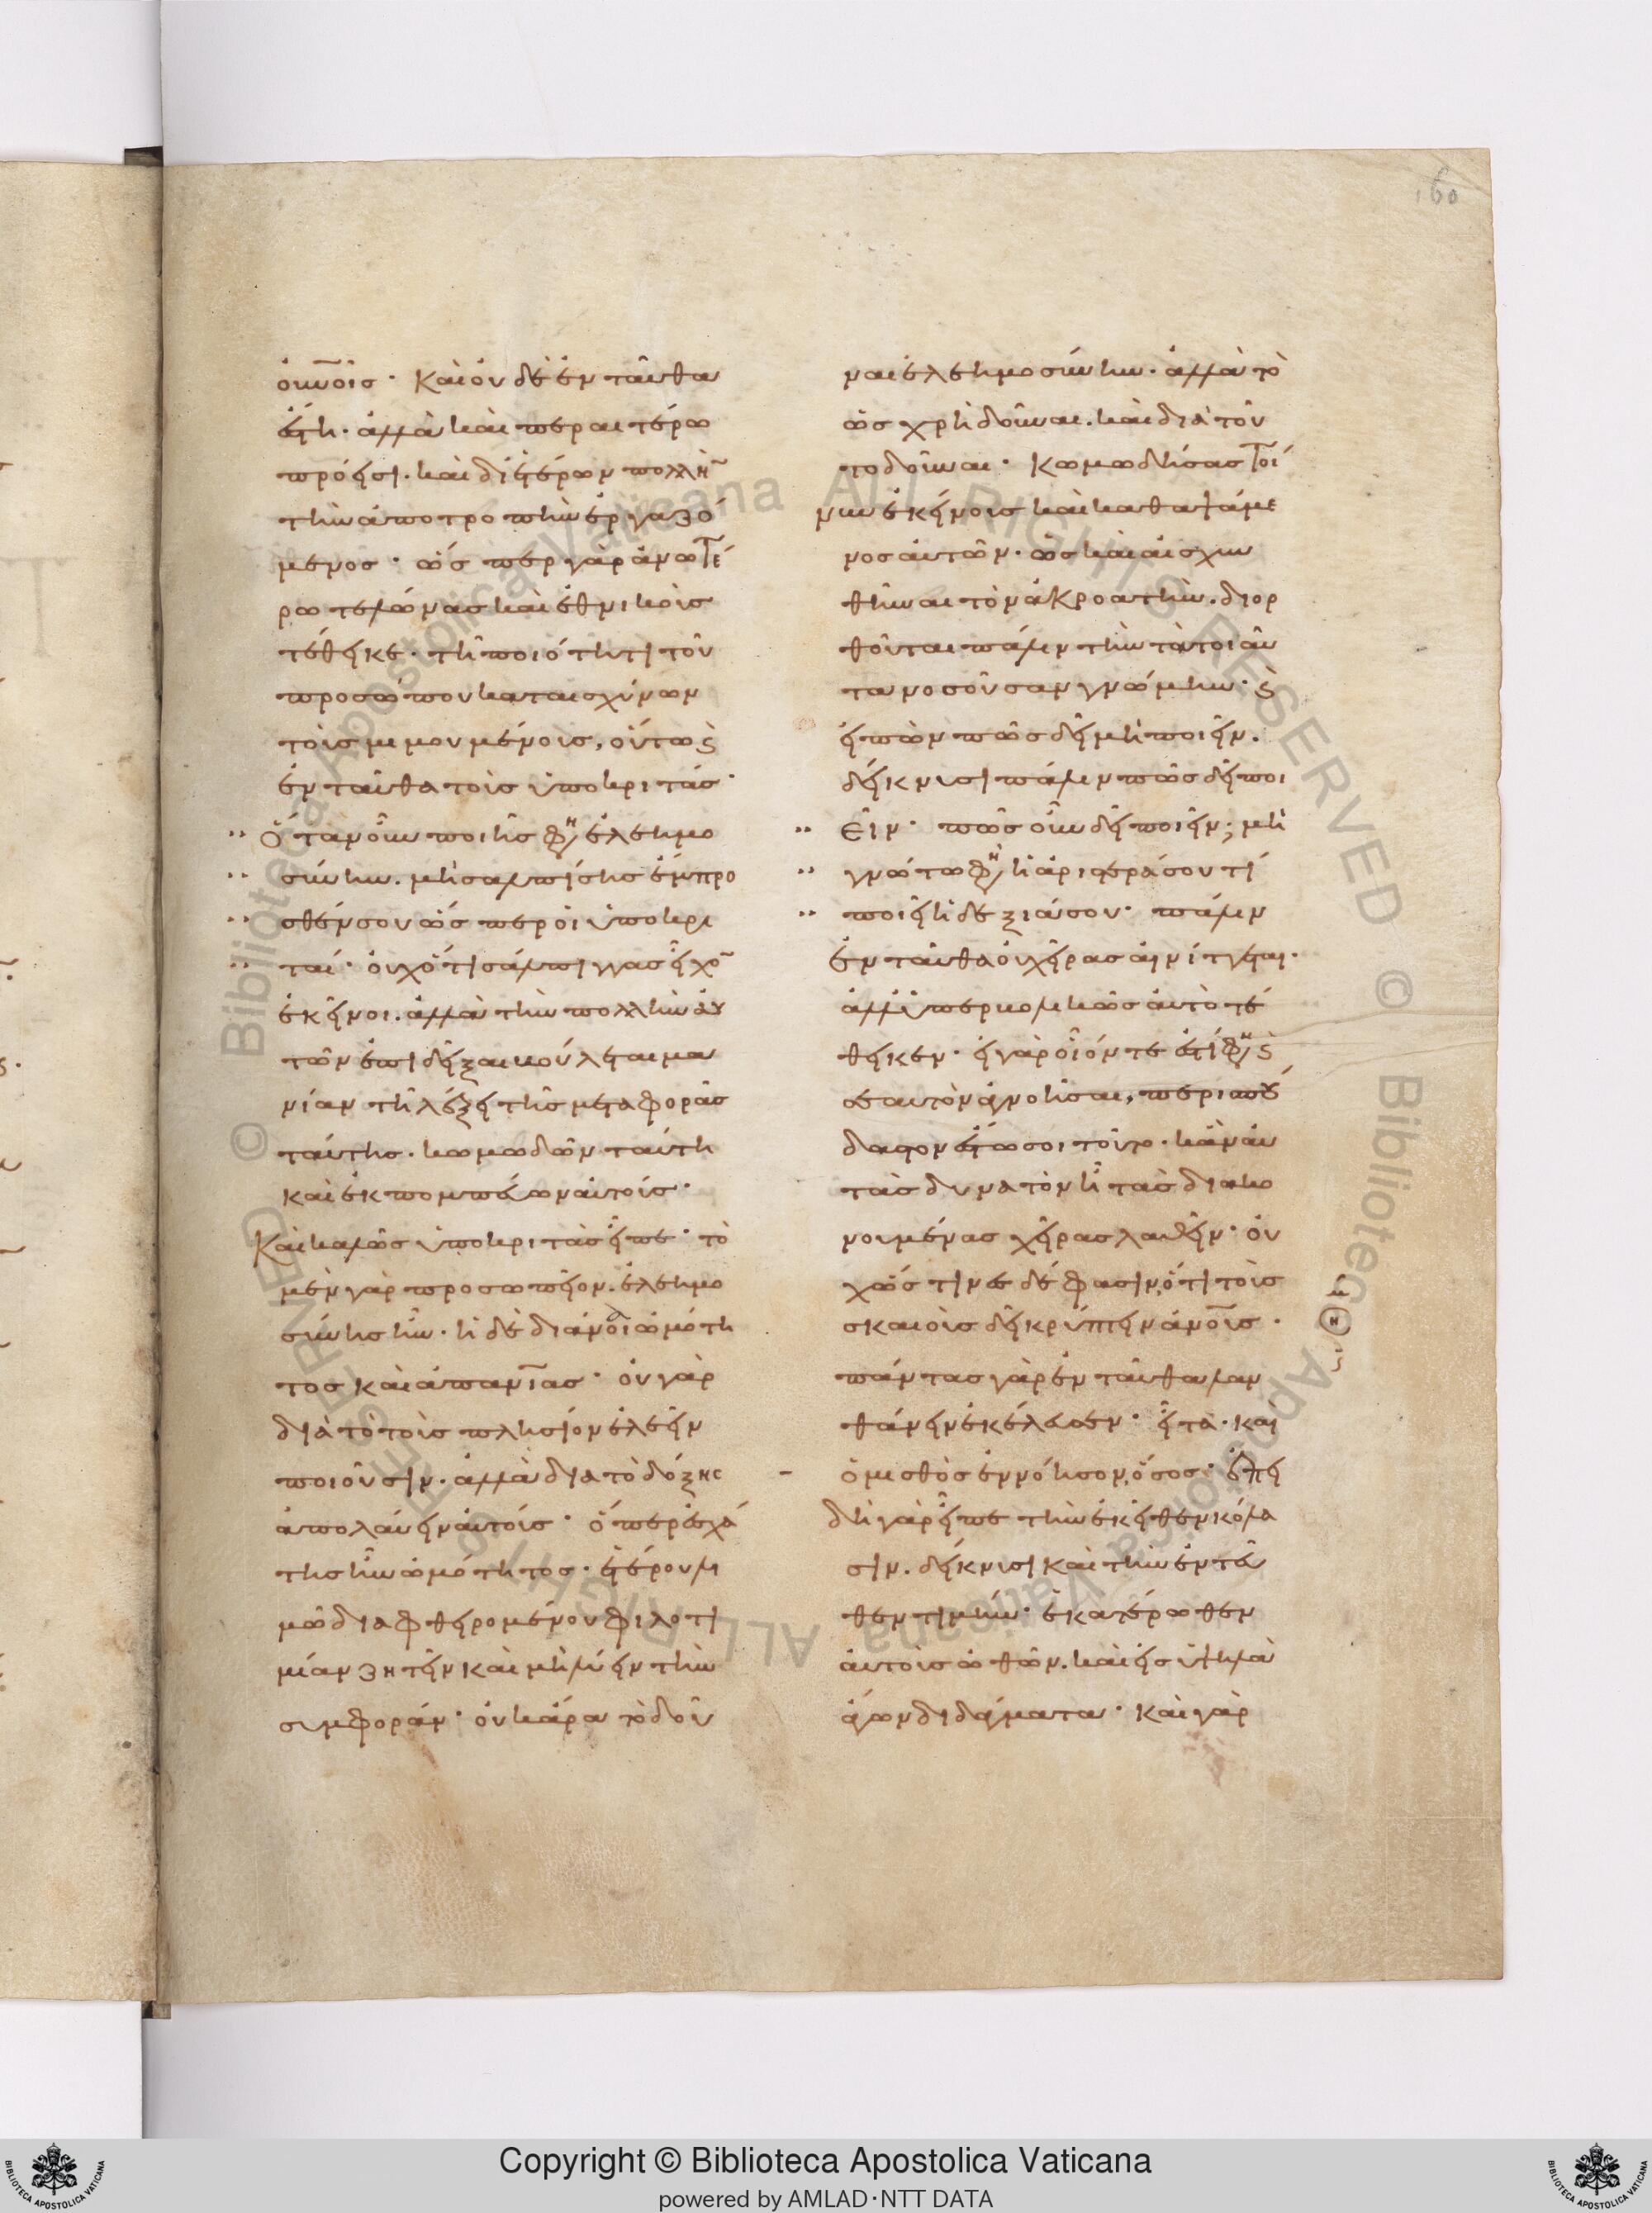 160
ὀυ(ρα)νοῖς · Καὶ οὐδὲ ἐνταῦθα
ἔστη · ἀλλὰ καὶ περαιτέρω
πρόεισι · καὶ δι' ἑτέρων πολλὴν
τὴν ἀποτροπὴν ἐργαζό
μενος · ὥσπερ γὰρ ἀνωτέ
ρω τελώνας καὶ ἐθνικοὺς
τέθεικε · τῇ ποιότητι τοῦ
προσώπου καταισχύνων
τοὺς μιμουμένους, οὕτω καὶ
ἐνταῦθα τοὺς ὑποκριτάς ·
Ὅταν οὖν ποιῇς φη(σιν) ἐλεημο
σύνην · μὴ σαλπίσῃς ἔμπρο
σθέν σου ὥσπερ οἱ ὑποκρι
ταί · οὐχ ὅτι σάλπιγγας εἶχον
ἐκεῖνοι · ἀλλὰ τὴν πολλὴν αὐ
τῶν ἐπιδεῖξαι βούλεται μα
νίαν τῇ λέξει τῆς μεταφορᾶς
ταύτης · κωμωδῶν ταύτη
καὶ ἐκπομπεύων αὐτούς ·
Καὶ καλῶς ὑποκριτὰς εἶπε · τὸ
μὲν γὰρ προσωπεῖον · ἐλεημο
σύνης ἦν · ἡ δὲ διάνοια ὠμότη
τος καὶ ἀπανθρωπίας · οὐ γὰρ
διὰ τὸ τοὺς πλησίον ἐλεεῖν
ποιοῦσιν · ἀλλὰ διὰ τὸ δόξης
ἀπολαύειν αὐτούς · ὅπερ ἐσχά
της ἦν ὠμότητος · ἑτέρου λι
μῶ διαφθειρομένου φιλοτι
μίαν ζητεῖν καὶ μὴ λύειν τὴν
συμφοράν · οὐκ ἄρα τὸ δοῦ
ναι ἐλεημοσύνην · ἀλλὰ τὸ
ὡς χρὴ δοῦναι · καὶ διὰ τοῦ
το δοῦναι · Κωμωδήσας τοί
νυν ἐκείνους καὶ καθαψάμε
νος αὐτῶν · ὡς καὶ αἰσχυν
θῆναι τὸν ἀκροατὴν · διορ
θοῦται πάλιν τὴν τὰ τοιαῦ
τα νοσοῦσαν γνώμην · καὶ
εἰπὼν πῶς δεῖ μὴ ποιεῖν ·
δείκνυσι πάλιν πῶς δεῖ ποι
εῖν · πῶς οὖν δεῖ ποιεῖν; μὴ
γνώτω φη(σιν) ἡ ἀριστερά σου τί
ποιεῖ ἡ δεξιά σου · πάλιν
ἐνταῦθα οὐ χεῖρας αἰνίττεται ·
ἀλλ' ὑπερβολικῶς αὐτὸ τέ
θεικεν · εἰ γὰρ οἷόν τε ἐστί φη(σι) καὶ
σεαυτὸν ἀγνοῆσαι, περισπού
δαστον ἔστω σοι τοῦτο · κἂν αὐ
τὰς δυνατὸν ἦ τὰς διακο
νουμένας χεῖρας λαθεῖν · οὐ
χ ὥς τινές φασιν, ὅτι τοὺς
σκαιοὺς δεῖ κρύπτειν ἀν(θρώπ)ους ·
πάντας γὰρ ἐνταῦθα λαν
θάνειν ἐκέλευσεν · εἶτα · καὶ
ὁ μισθὸς ἐννόησον, ὅσος · ἐπει
δὴ γὰρ εἶπε τὴν ἐκεῖθεν κόλα
σιν · δείκνυσι καὶ τὴν ἐντεῦ
θεν τιμήν · ἑκατέρωθεν
αὐτοὺς ὠθῶν · καὶ εἰς ὑψηλὰ
ἄγων διδάγματα · καὶ γὰρ